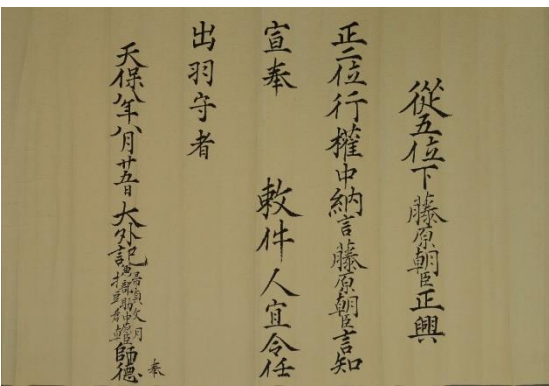 從五位下藤原朝臣正興
正二位行權中納言藤原朝臣言知
宣奉 敕件人宜令任
出羽守者
天保八年八月廿五日 大外記 師德 奉